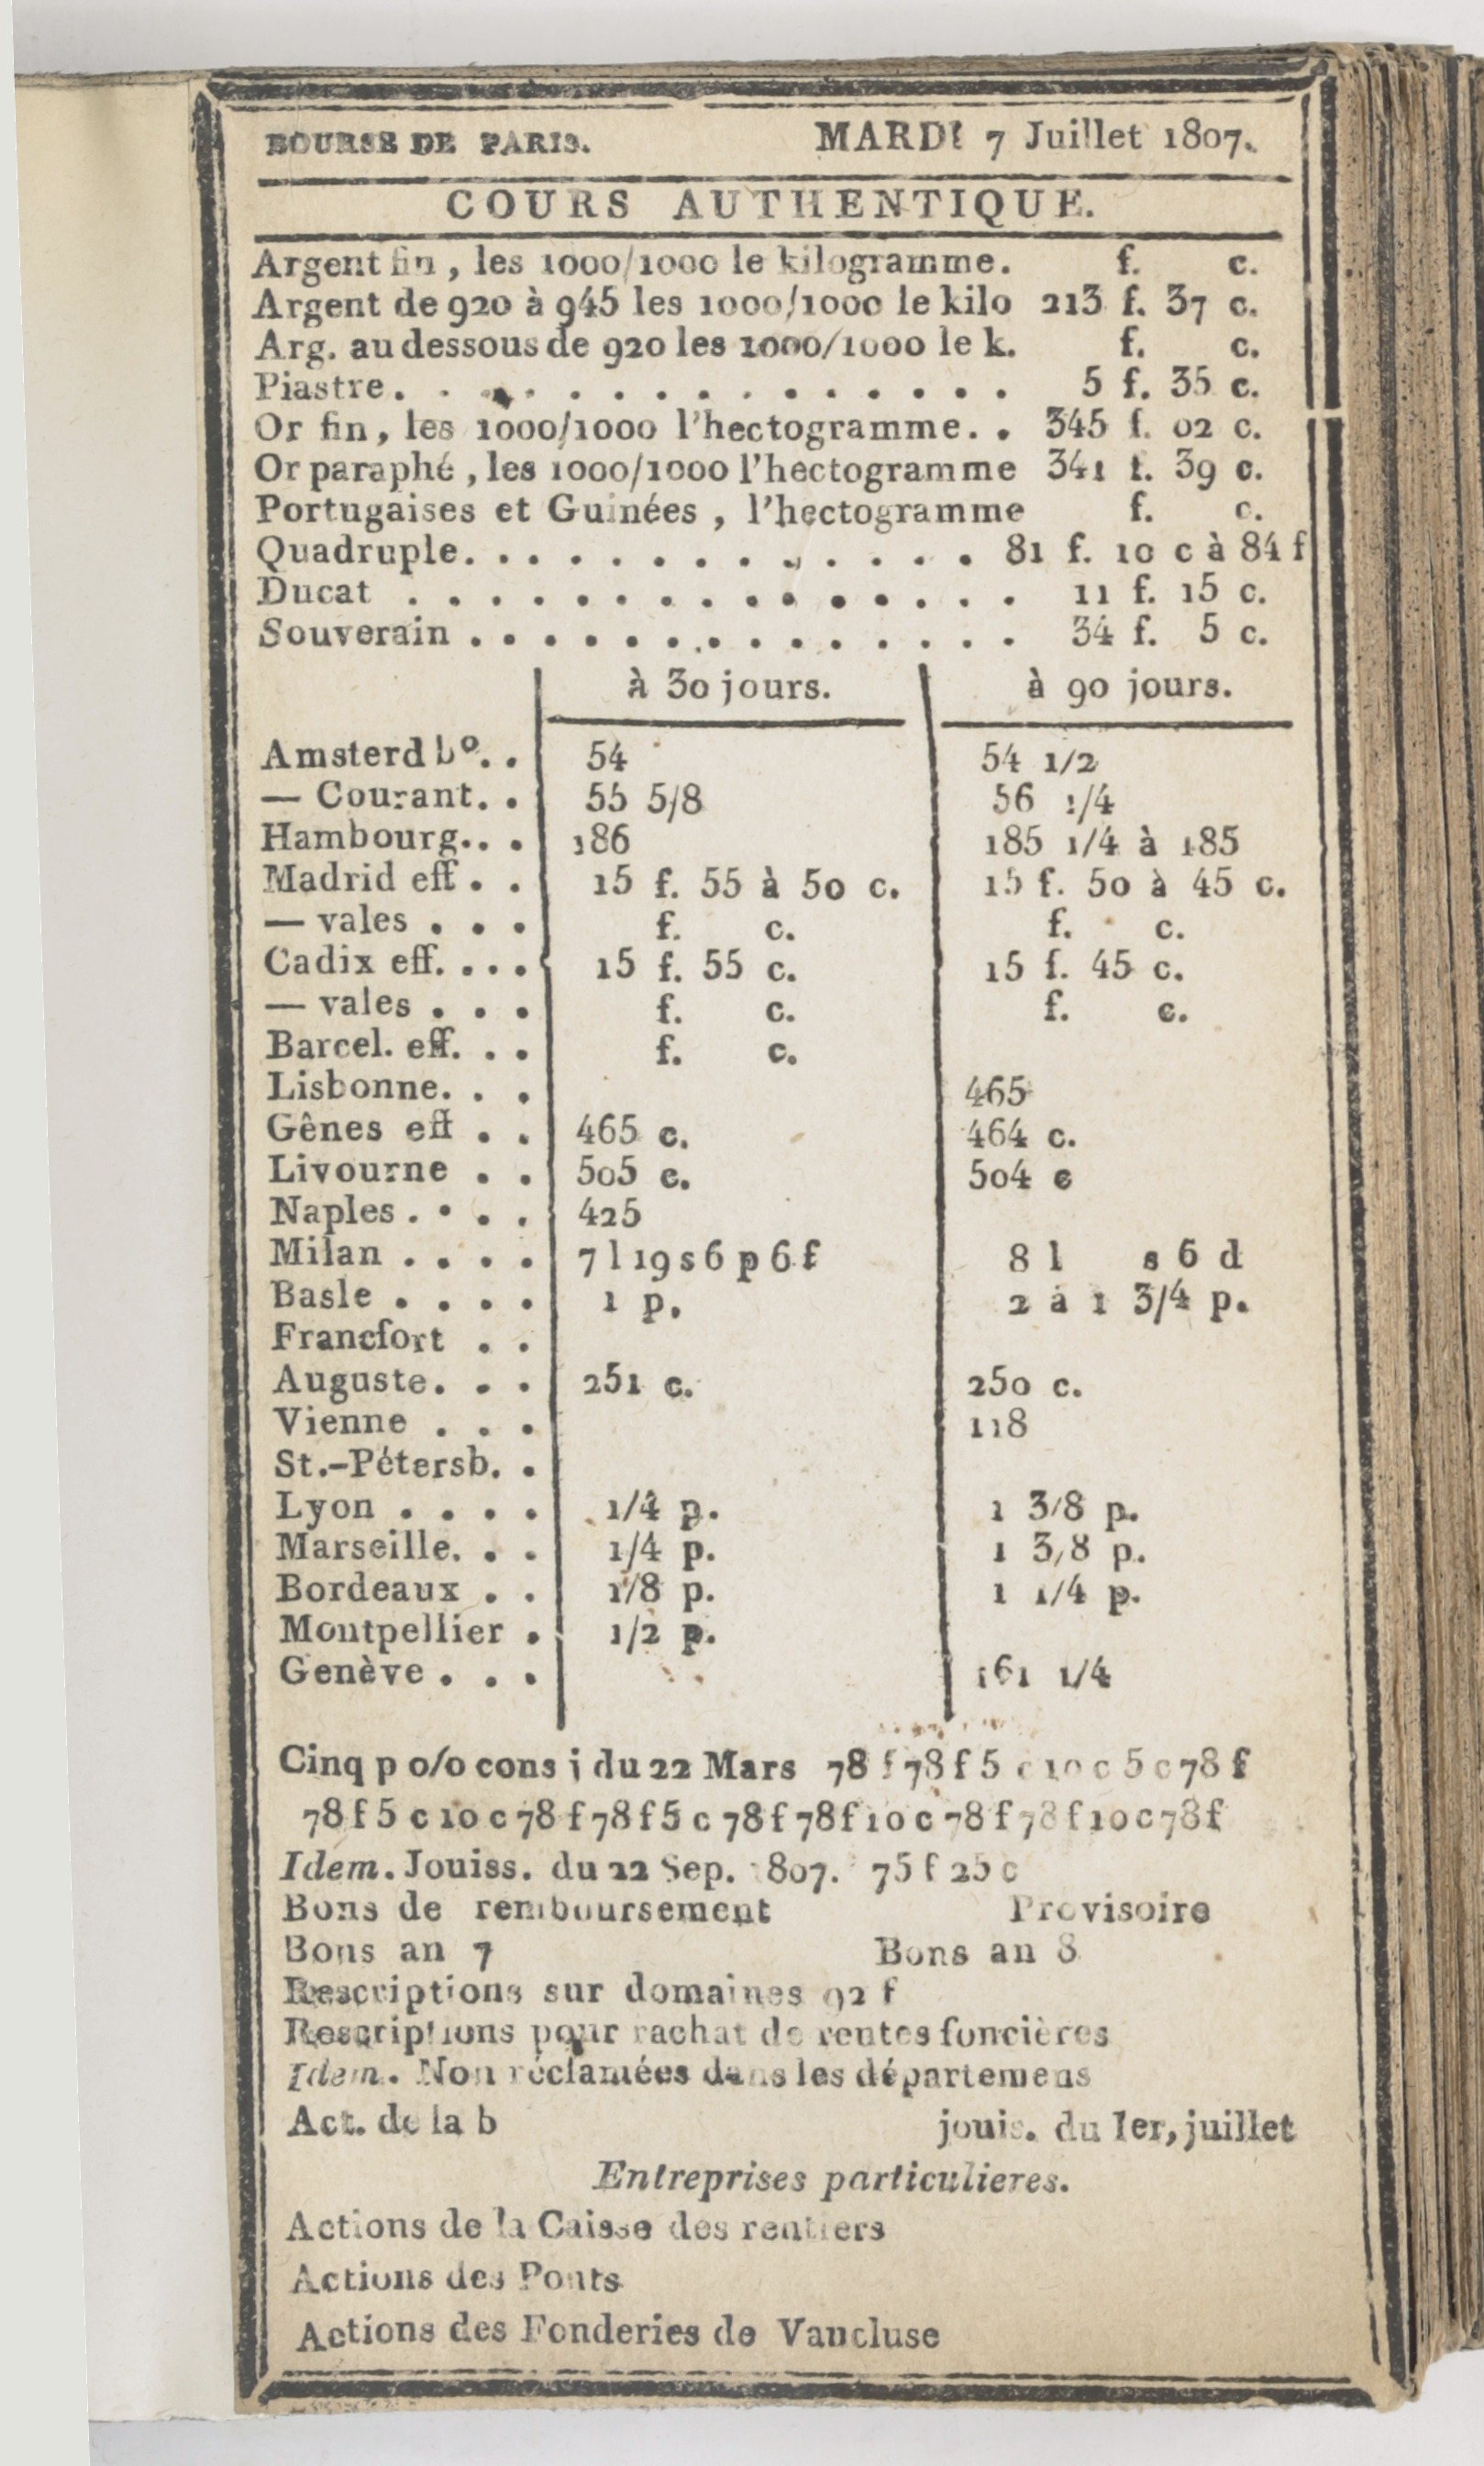 BOURSE DE PARIS. MARDI 7 Juillet 1807.
COURS AUTHENTIQUE.
Argent fin, les 1000/1000 le kilogramme. f. c.
Argent de 920 à 945 les 1000/1000 le kilo 213 f. 37 c.
Arg. au dessous de 920 les 1000/1000 le k. f. c.
Piastre. . . . . . . . . . . . . . . 5 f. 35 c.
Or fin, les 1000/1000 l'hectogramme. . 345 f. 02 c.
Or paraphé, les 1000/1000 l'hectogramme 341 f. 39 c.
Portugaises et Guinées, l'hectogramme f. c.
Quadruple. . . . . . . . . . . . . 81 f. 10 c à 84 f
Ducat . . . . . . . . . . . . . . . 11 f. 15 c.
Souverain . . . . . . . . . . . . . . 34 f. 5 c.
à 30 jours. à 90 jours.
Amsterd bº. . 54 54 1/2
— Courant. . 55 5/8 56 1/4
Hambourg. . . 186 185 1/4 à 185
Madrid eff . . 15 f. 55 à 50 c. 15 f. 50 à 45 c.
— vales . . . f. c. f. c.
Cadix eff. . . . 15 f. 55 c. 15 f. 45 c.
— vales . . . f. c. f. c.
Barcel. eff. . . f. c.
Lisbonne. . . 465
Gênes eff . . 465 c. 464 c.
Livourne . . 505 c. 504 c
Naples . . . . 425
Milan . . . . 7 l 19 s 6 p 6 f 8 l s 6 d
Basle . . . . 1 p. 2 à 1 3/4 p.
Francfort . .
Auguste. . . 251 c. 250 c.
Vienne . . . 118
St.-Pétersb. .
Lyon . . . . 1/4 p. 1 3/8 p.
Marseille. . . 1/4 p. 1 3/8 p.
Bordeaux . . 1/8 p. 1 1/4 p.
Montpellier . 1/2 p.
Genève . . . 161 1/4
Cinq p o/o cons j du 22 Mars 78 f 78 f 5 c 10 c 5 c 78 f
78 f 5 c 10 c 78 f 78 f 5 c 78 f 78 f 10 c 78 f 78 f 10 c 78 f
Idem. Jouiss. du 22 Sep. 1807. 75 f 25 c
Bons de remboursement Provisoire
Bons an 7 Bons an 8
Rescriptions sur domaines 92 f
Rescriptions pour rachat de rentes foncières
Idem. Non réclamées dans les départemens
Act. de la b jouis. du 1er, juillet
Entreprises particulieres.
Actions de la Caisse des rentiers
Actions des Ponts
Actions des Fonderies de Vaucluse